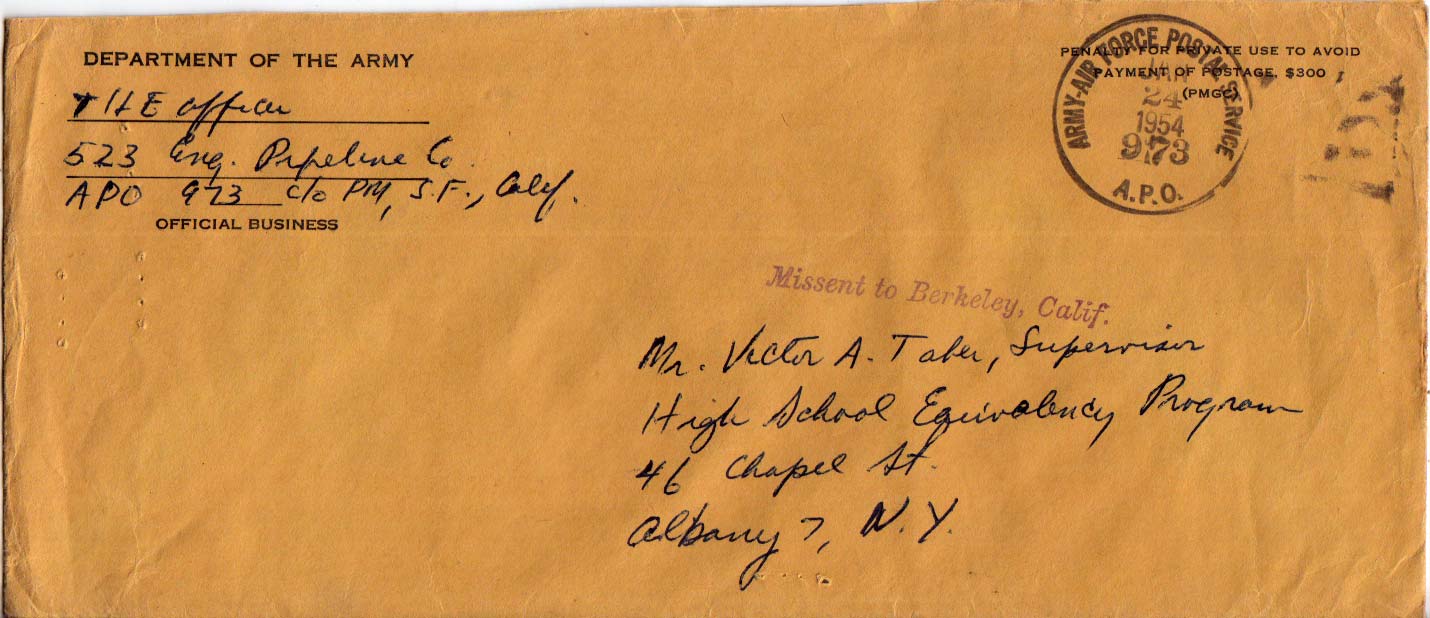 DEPARTMENT OF THE ARMY
I & E Officer
523 Eng. Pipeline Co.
APO 973 c/o PM, S.F., Calif.
OFFICIAL BUSINESS
PENALTY FOR PRIVATE USE TO AVOID
PAYMENT OF POSTAGE, $300
(PMGC)
ARMY-AIR FORCE POSTAL SERVICE
JAN
24
1954
973
A.P.O.
Missent to Berkeley, Calif.
Mr. Victor A. Taber, Supervisor
High School Equivalency Program
46 Chapel St.
Albany 7, N.Y.